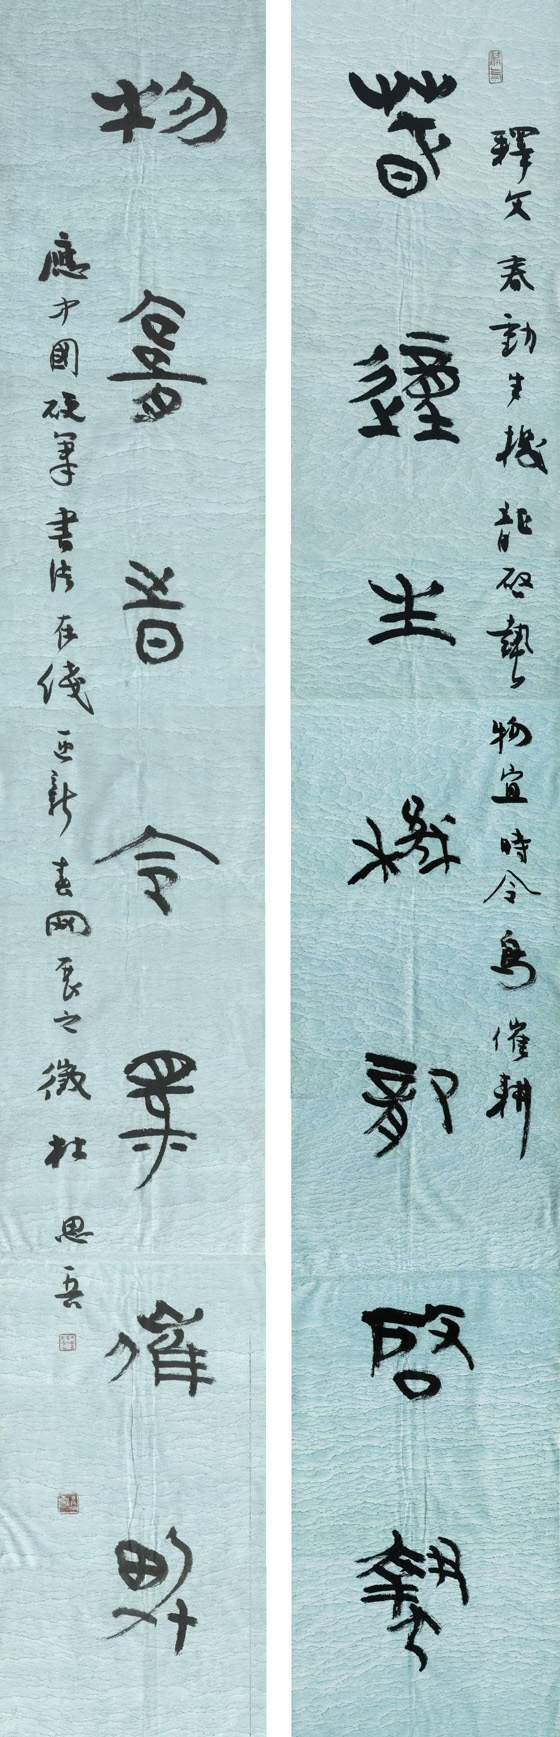 釋文春動生機龍啓勢物宜時令鳥催耕
春動生機龍啓勢
物宜時令鳥催耕
應中國硬筆書法在綫新春网展之徵杜思吾